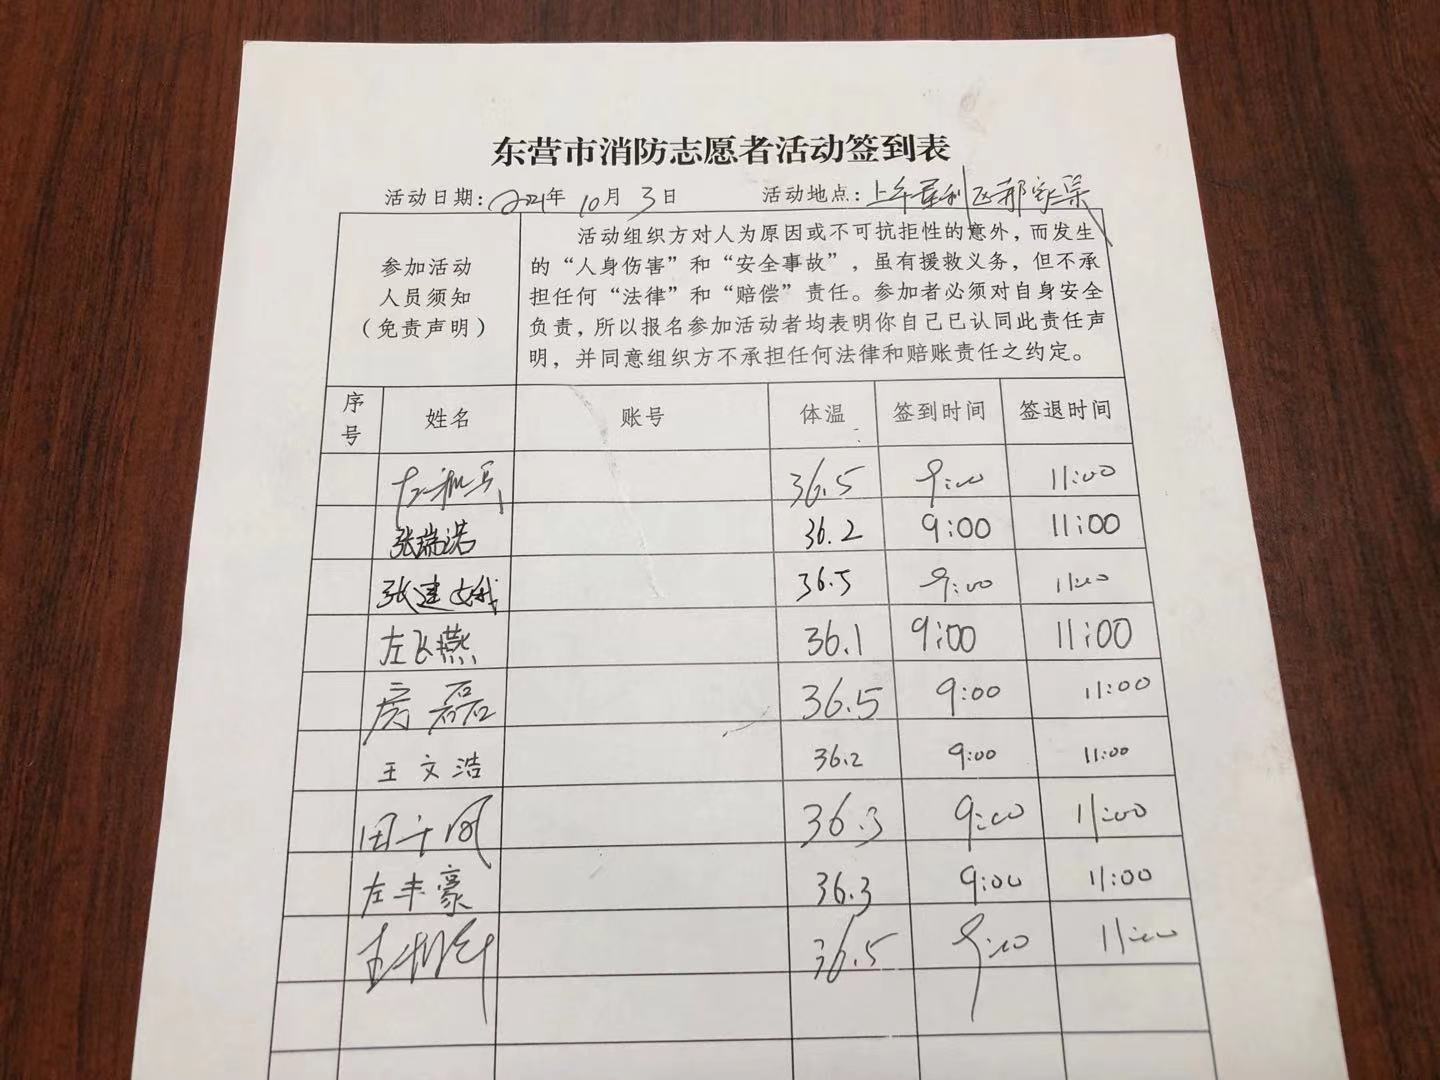 东营市消防志愿者活动签到表
活动日期：2021年 10月 3日 活动地点：上午垦利区郝家
参加活动
人员须知
（免责声明）
活动组织方对人为原因或不可抗拒性的意外，而发生
的“人身伤害”和“安全事故”，虽有援救义务，但不承
担任何“法律”和“赔偿”责任。参加者必须对自身安全
负责，所以报名参加活动者均表明你自己已认同此责任声
明，并同意组织方不承担任何法律和赔账责任之约定。
序号 姓名 账号 体温 签到时间 签退时间
36.5 9:00 11:00
张瑞诺 36.2 9:00 11:00
张建娥 36.5 9:00 11:00
左飞燕 36.1 9:00 11:00
房磊 36.5 9:00 11:00
王文浩 36.2 9:00 11:00
田 36.3 9:00 11:00
左丰豪 36.3 9:00 11:00
36.5 9:00 11:00